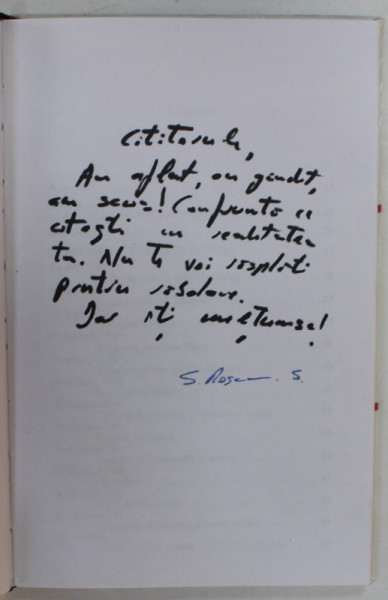 Cititorule,
Am aflat, am gândit,
am scris! Confruntă ce
citești cu realitatea
ta. Nu te voi răsplăti
pentru răbdare.
Dar îți mulțumesc!
S. Roșca S.